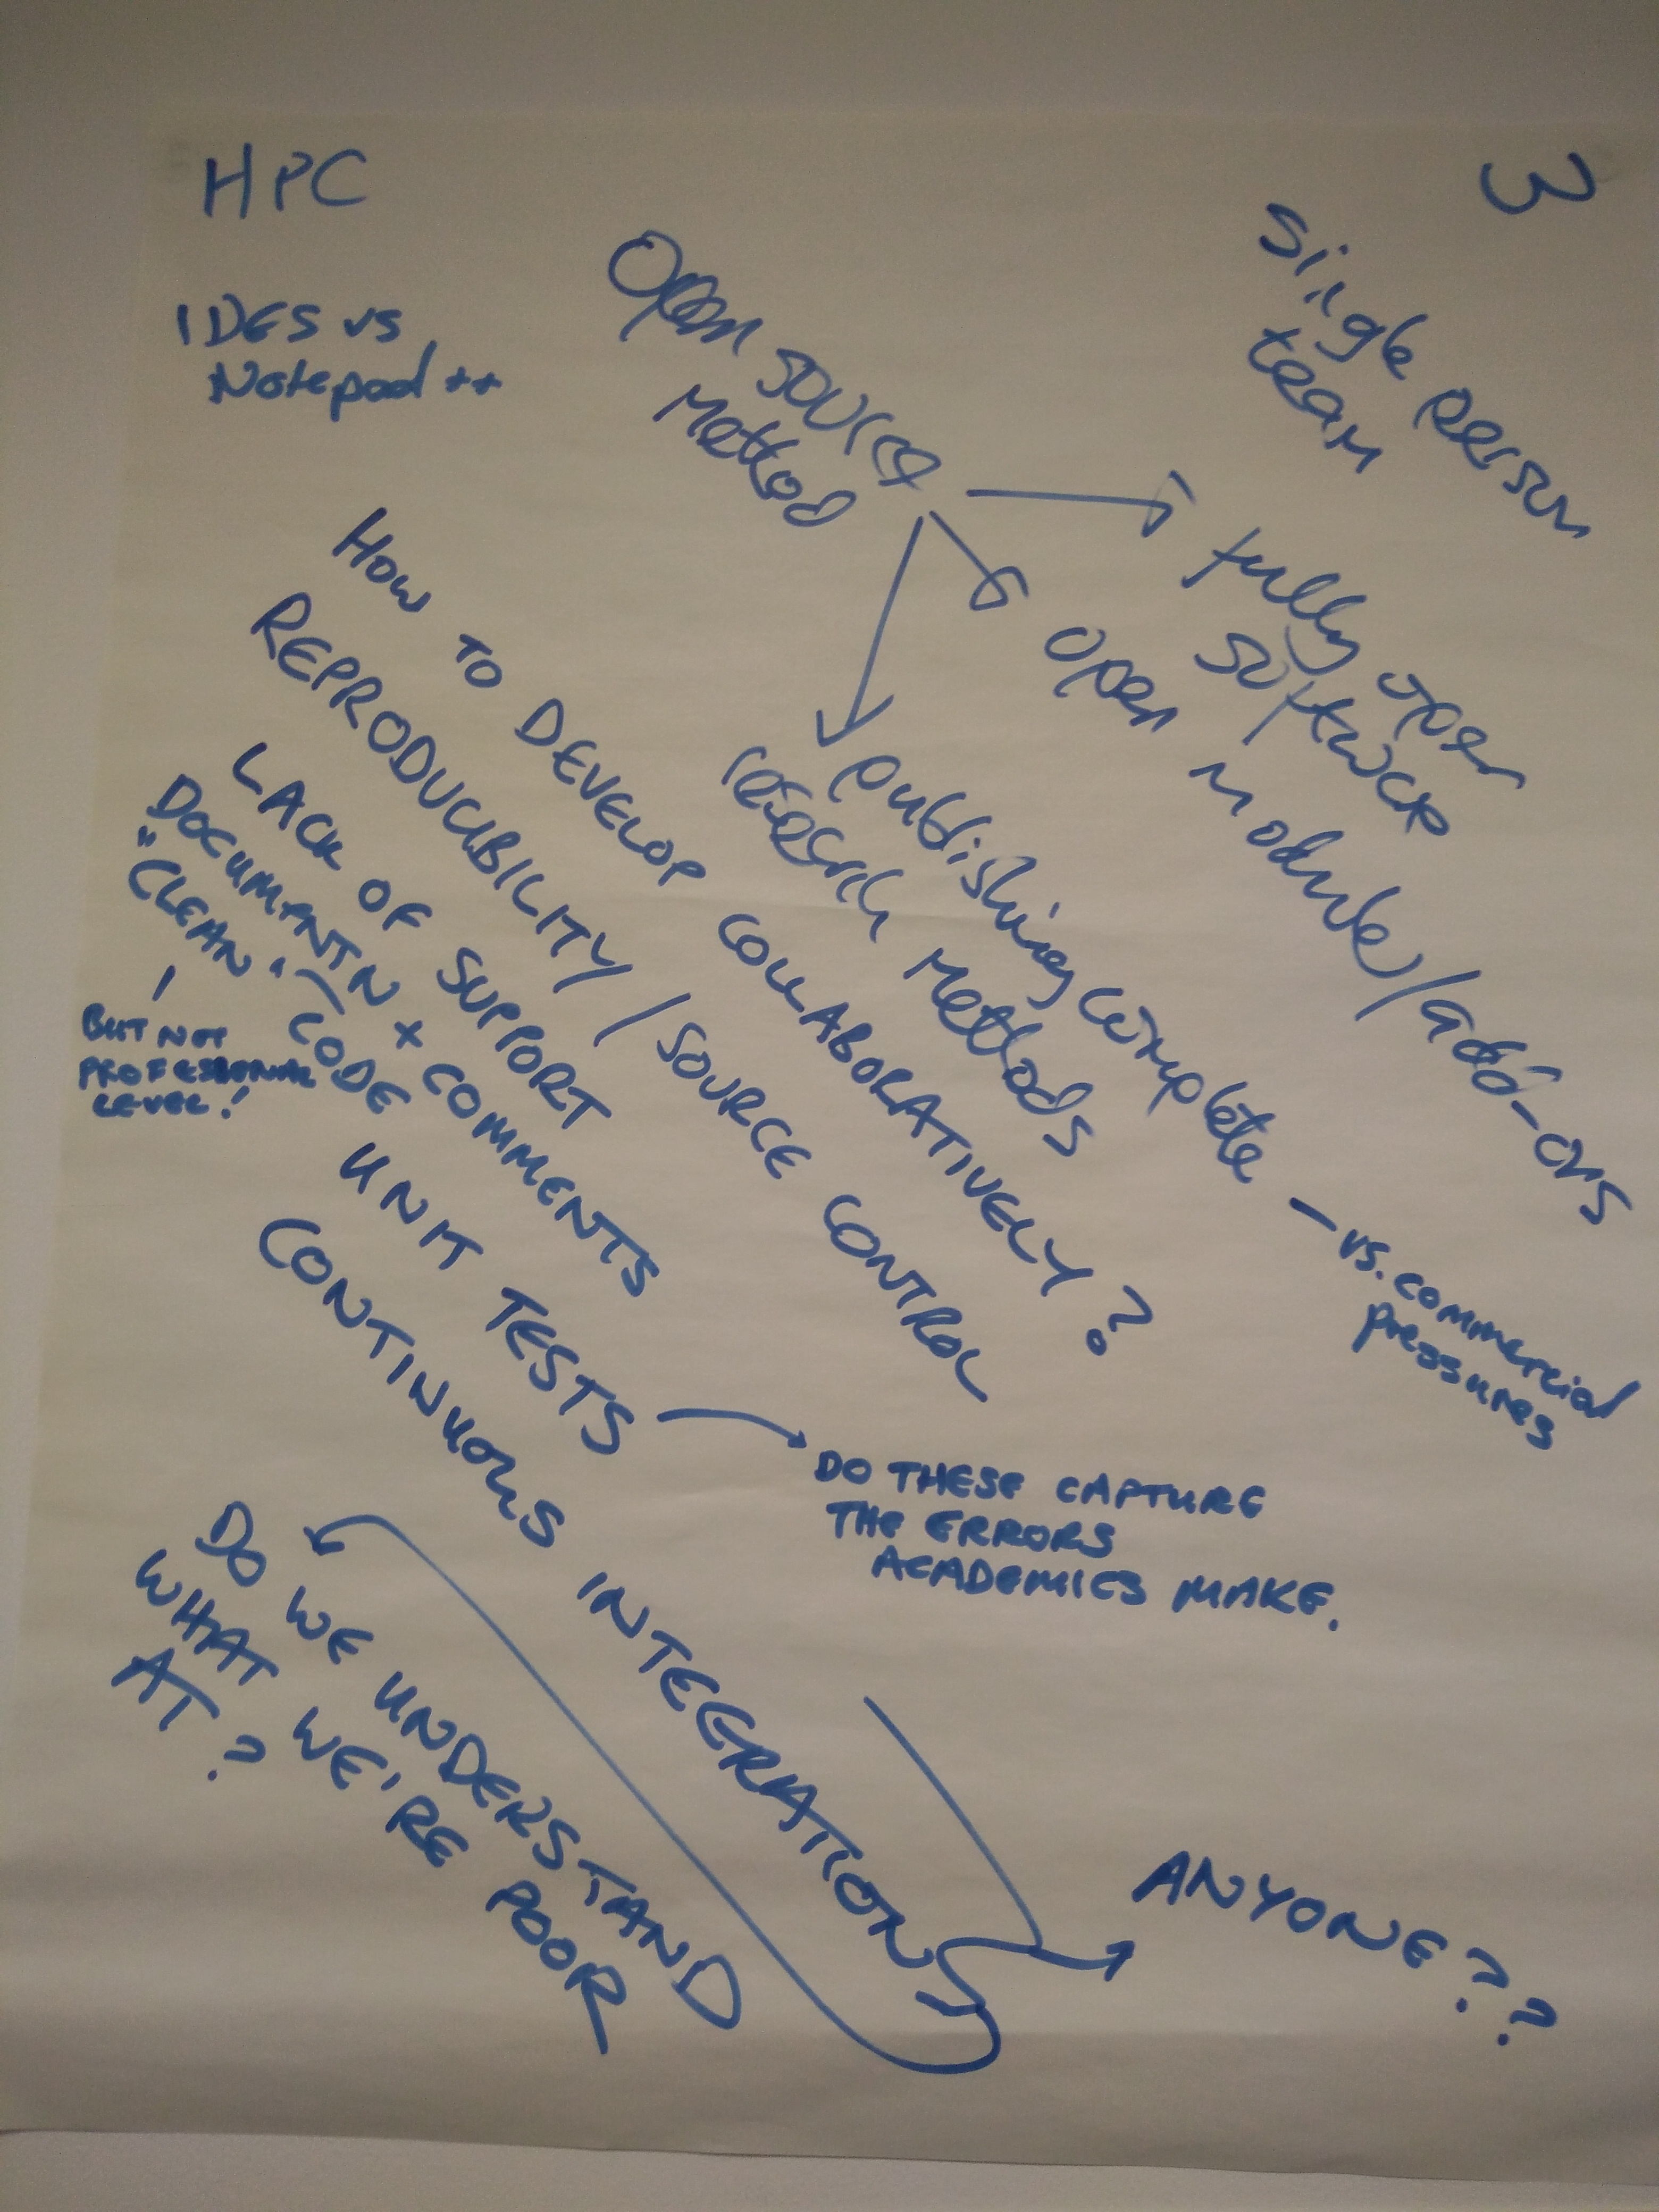 3
HPC
IDES vs
Notepad ++
single person
team
Open source
Method
fully open
software
open module/add-ons
publishing complete
research methods
- vs. commercial
pressures
HOW TO DEVELOP COLLABORATIVELY?
REPRODUCIBILITY / SOURCE CONTROL
LACK OF SUPPORT
DOCUMANTN + COMMENTS
"CLEAN" CODE
BUT NOT
PROFESSIONAL
LEVEL!
UNIT TESTS
DO THESE CAPTURE
THE ERRORS
ACADEMICS MAKE.
CONTINUOUS INTEGRATION
ANYONE??
DO WE UNDERSTAND
WHAT WE'RE POOR
AT?